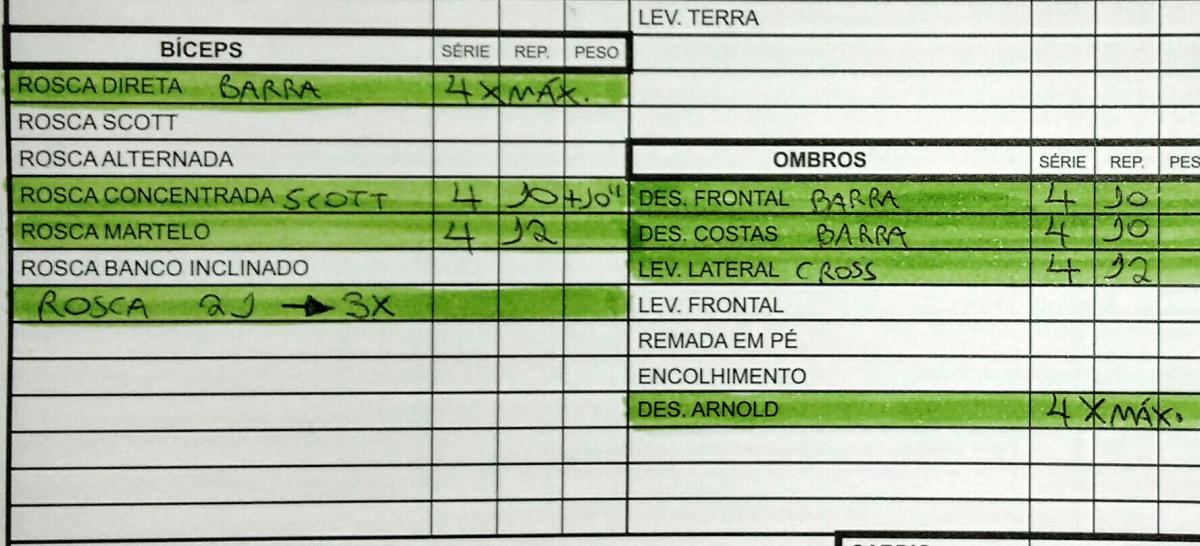 LEV. TERRA
BÍCEPS SÉRIE REP. PESO
ROSCA DIRETA BARRA 4 X MÁX.
ROSCA SCOTT
ROSCA ALTERNADA
ROSCA CONCENTRADA SCOTT 4 10 +10"
ROSCA MARTELO 4 12
ROSCA BANCO INCLINADO
ROSCA 21 → 3X
OMBROS SÉRIE REP. PES
DES. FRONTAL BARRA 4 10
DES. COSTAS BARRA 4 10
LEV. LATERAL CROSS 4 12
LEV. FRONTAL
REMADA EM PÉ
ENCOLHIMENTO
DES. ARNOLD 4 X MÁX.